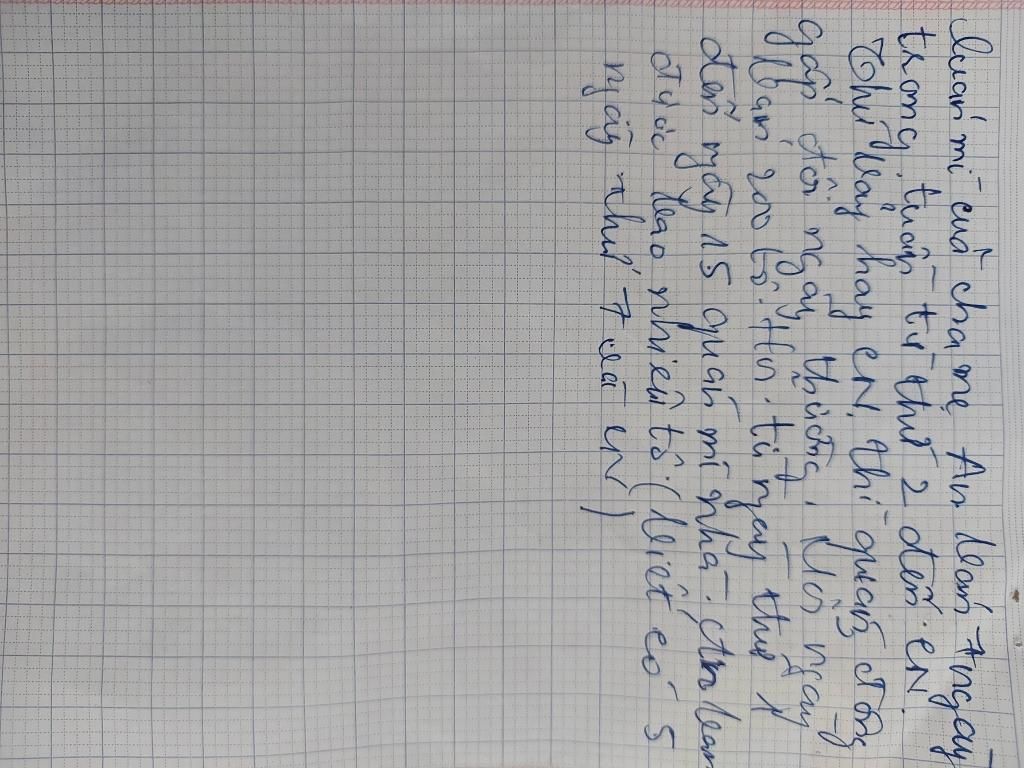 Quán mì của cha mẹ An bán 7 ngày
trong tuần từ thứ 2 đến CN.
Thứ bảy hay CN thì quán đông
gấp đôi ngày thường, Mỗi ngày
bán 200 tô. Hỏi từ ngày thứ 1
đến ngày 15 quán mì nhà An bán
được bao nhiêu tô. (Biết có 5
ngày thứ 7 và CN)